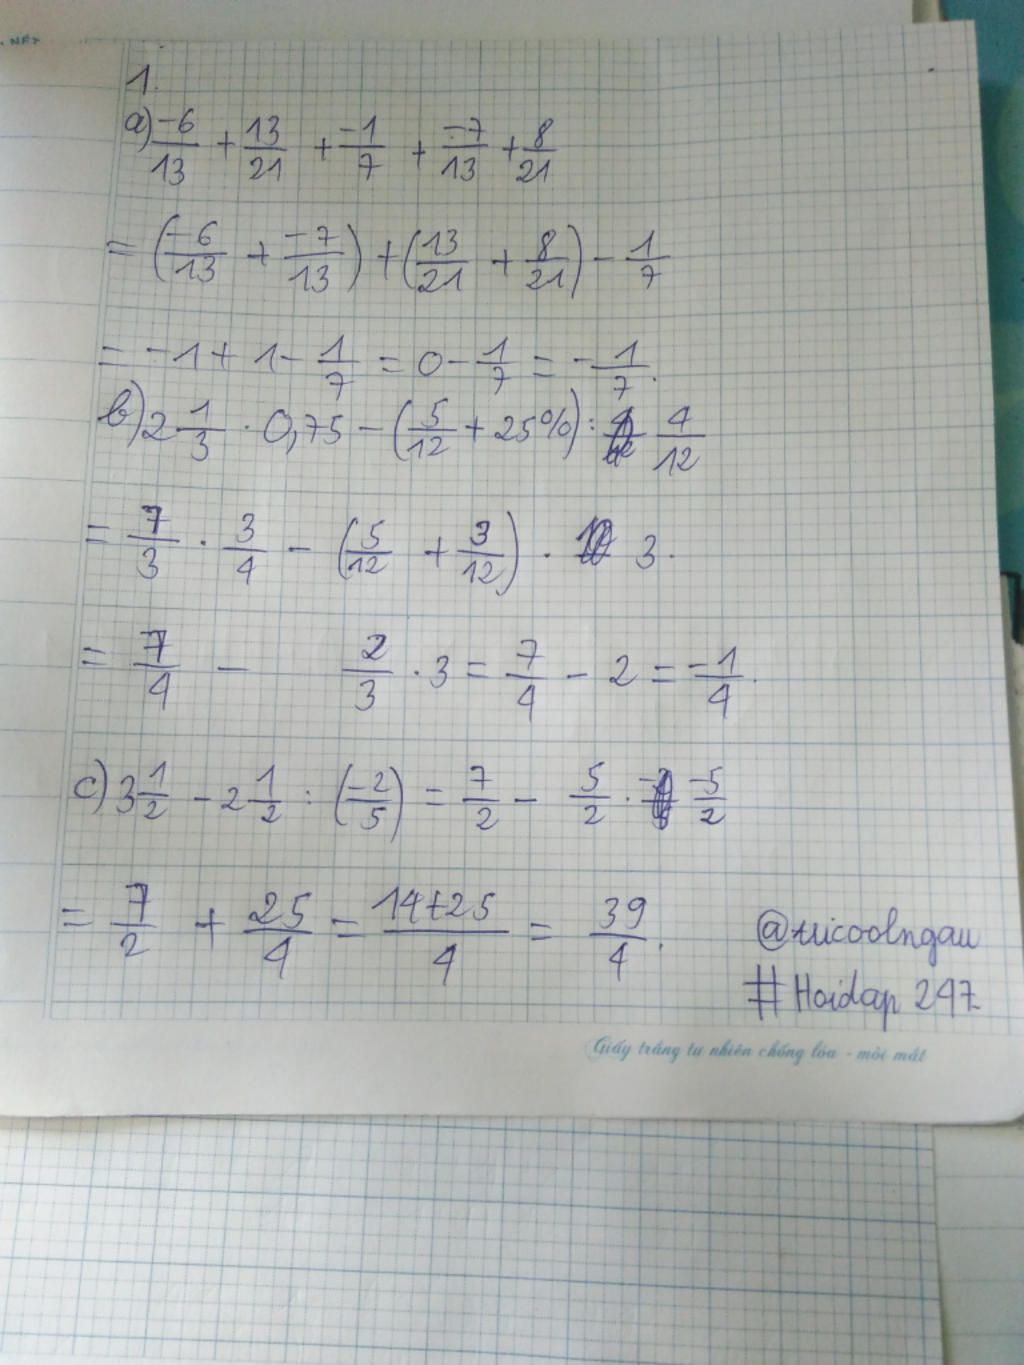 1.
a) -6/13 + 13/21 + -1/7 + -7/13 + 8/21
= (-6/13 + -7/13) + (13/21 + 8/21) - 1/7
= -1 + 1 - 1/7 = 0 - 1/7 = -1/7.
b) 2 1/3 . 0,75 - (5/12 + 25%) : 4/12
= 7/3 . 3/4 - (5/12 + 3/12) . 3.
= 7/4 - 2/3 . 3 = 7/4 - 2 = -1/4.
c) 3 1/2 - 2 1/2 : (-2/5) = 7/2 - 5/2 . -5/2
= 7/2 + 25/4 = 14+25/4 = 39/4.
#Hoidap 247
Giấy trắng tự nhiên chống lóa - mỏi mắt